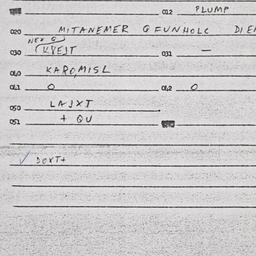 012 PLUMP
020 MITANEMER GFUNHOLC DIE
NEX 5
030 (KVEJT 031 —
040 KAROMISL
041 O 042 O
050 LAJXT
051 + QU
✓ DOXT+